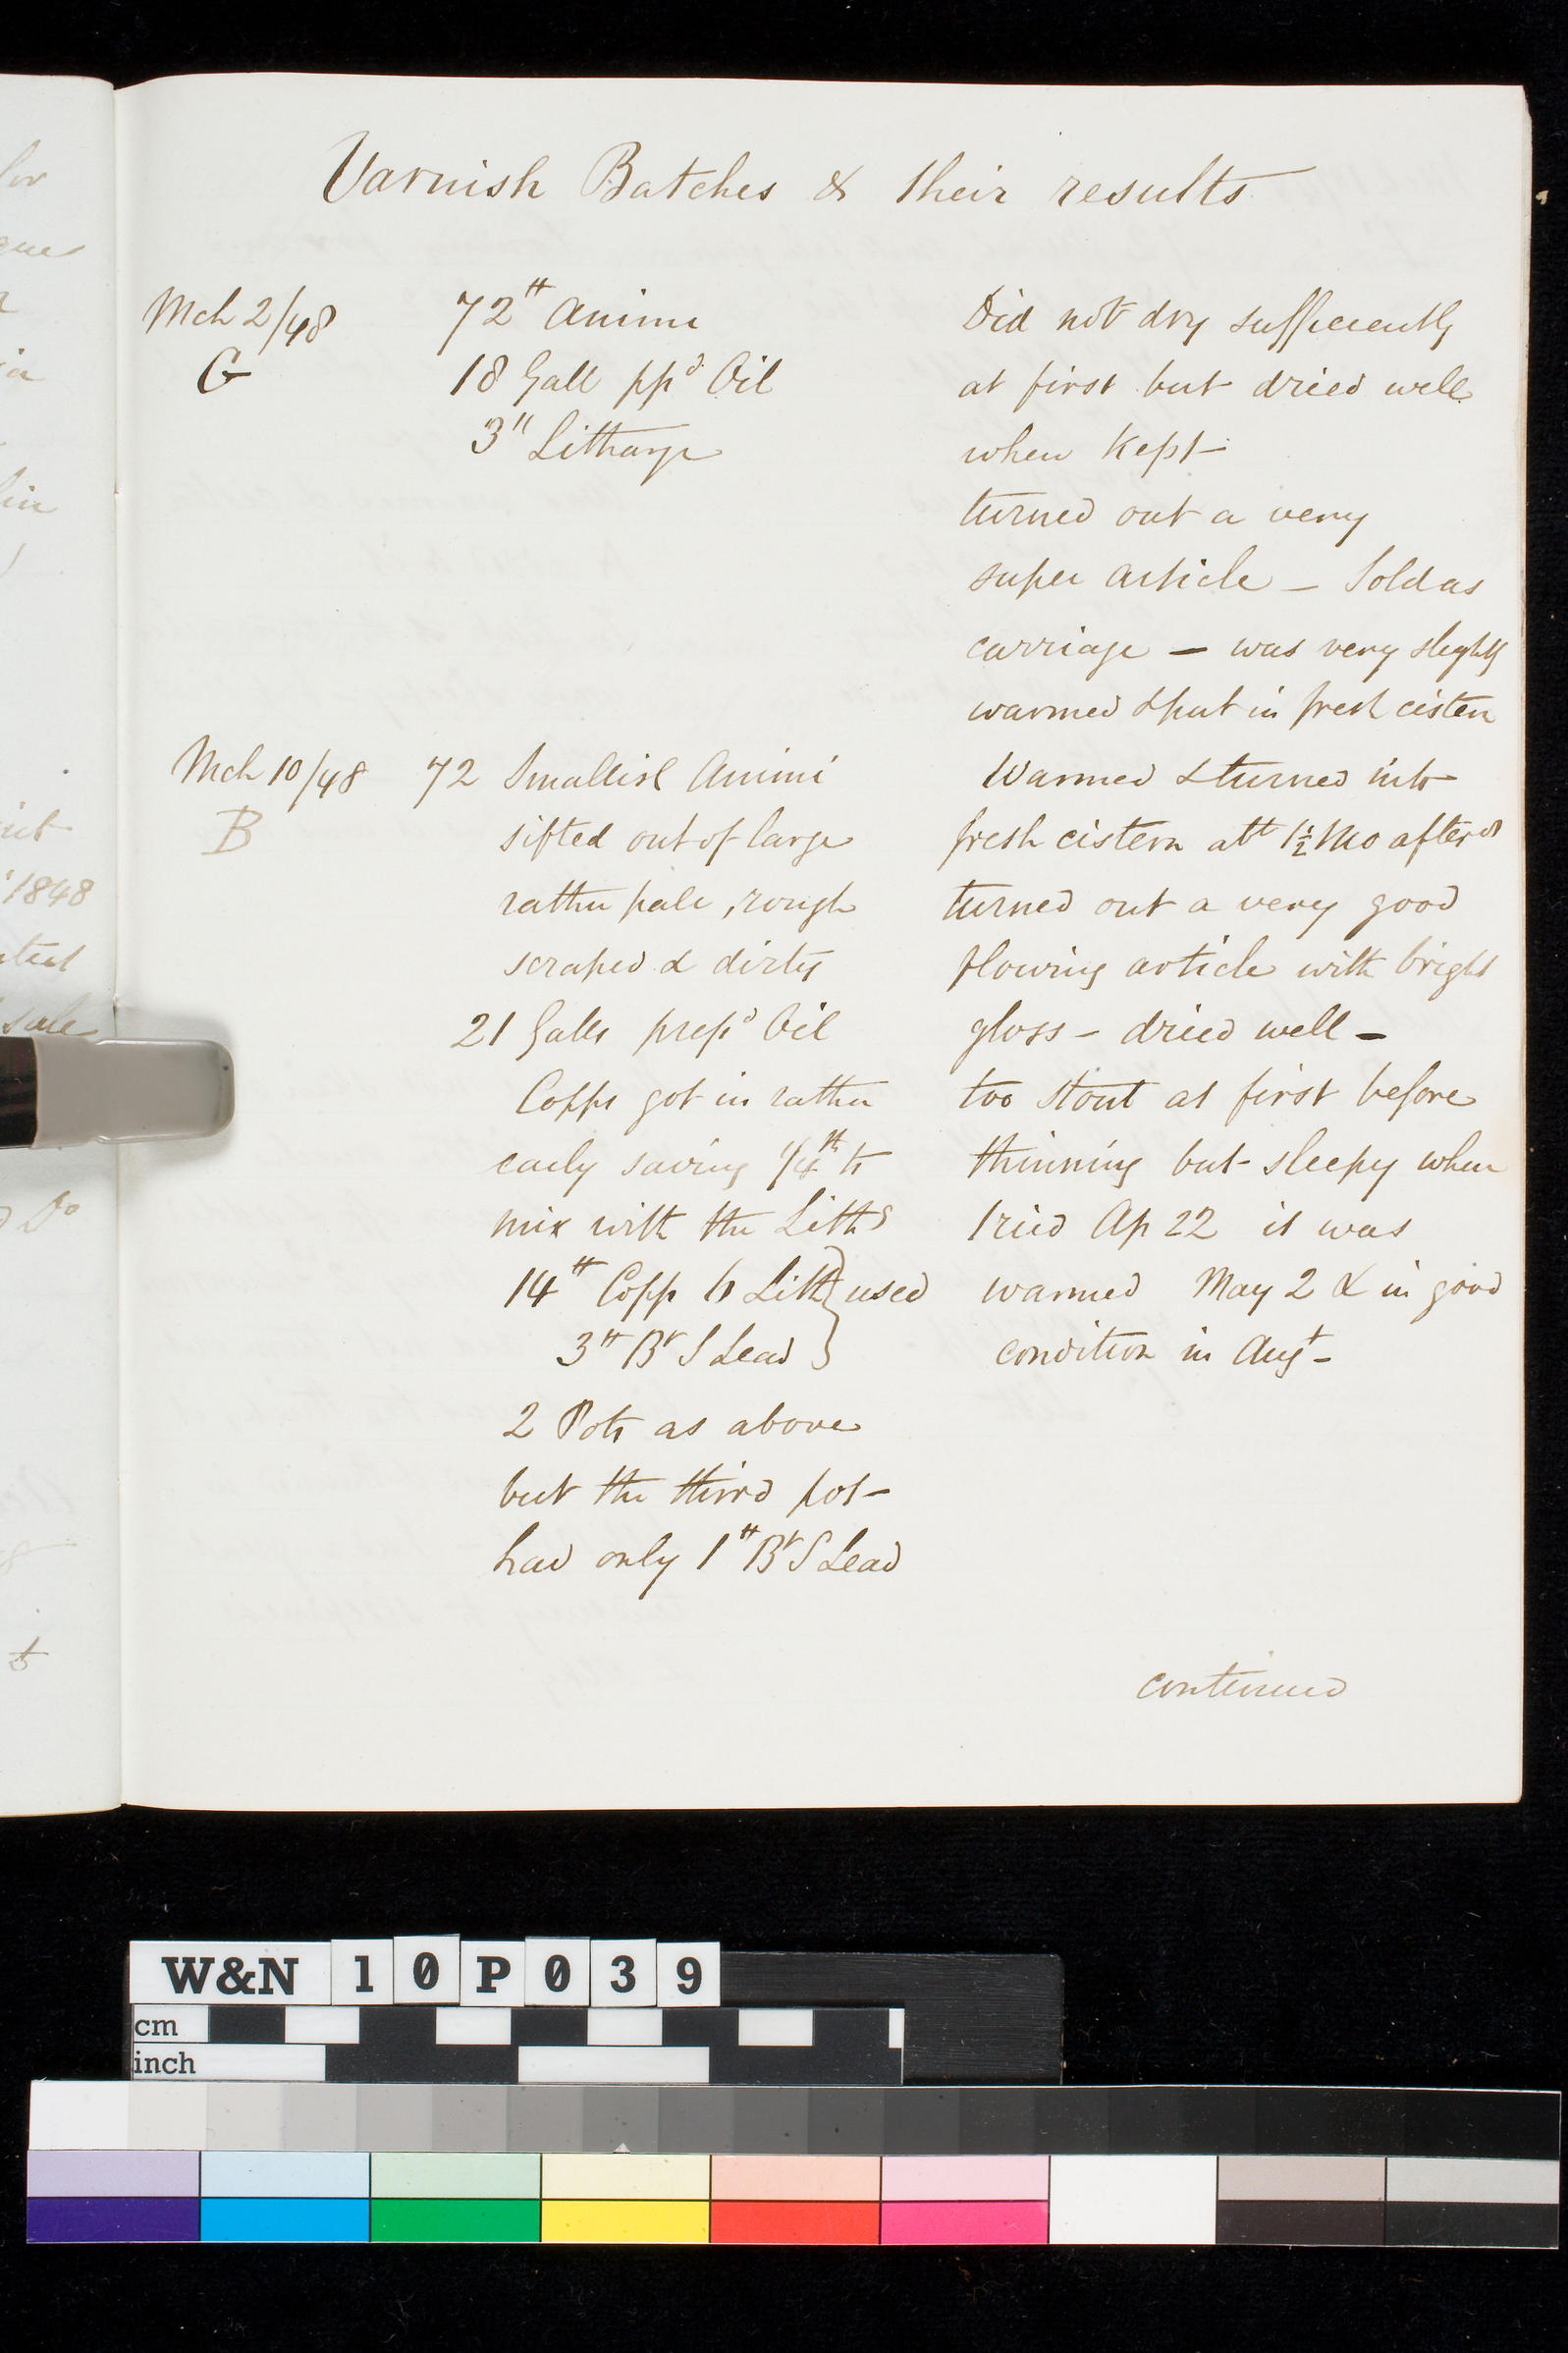 Varnish Batches & their results
Mch 2/48
G
72 tt Animi
18 Gall ppd Oil
3 tt Litharge
Did not dry sufficiently
at first but dried well
when Kept -
turned out a very
super article - Sold as
carriage - was very slightly
warmed & put in fresh cistern
Mch 10/48
B
72 Smallish Animi
sifted out of large
rather pale, rough
scraped & dirty
21 Galls prepd Oil
Copps got in rather
early saving 1/4th to
mix with the Lithg
14 tt Copp 6 Lith } used
3 tt Br S Lead
2 Pots as above
but the third pot -
had only 1 tt Br S Lead
Warmed & turned into
fresh cistern abt 1½ Mo afterds
turned out a very good
flowing article with bright
gloss - dried well -
too stout at first before
thinning but sleepy when
tried Ap 22 it was
warmed May 2 & in good
condition in Augt -
continued
1848
sale
Do
W&N 10P039
cm
inch